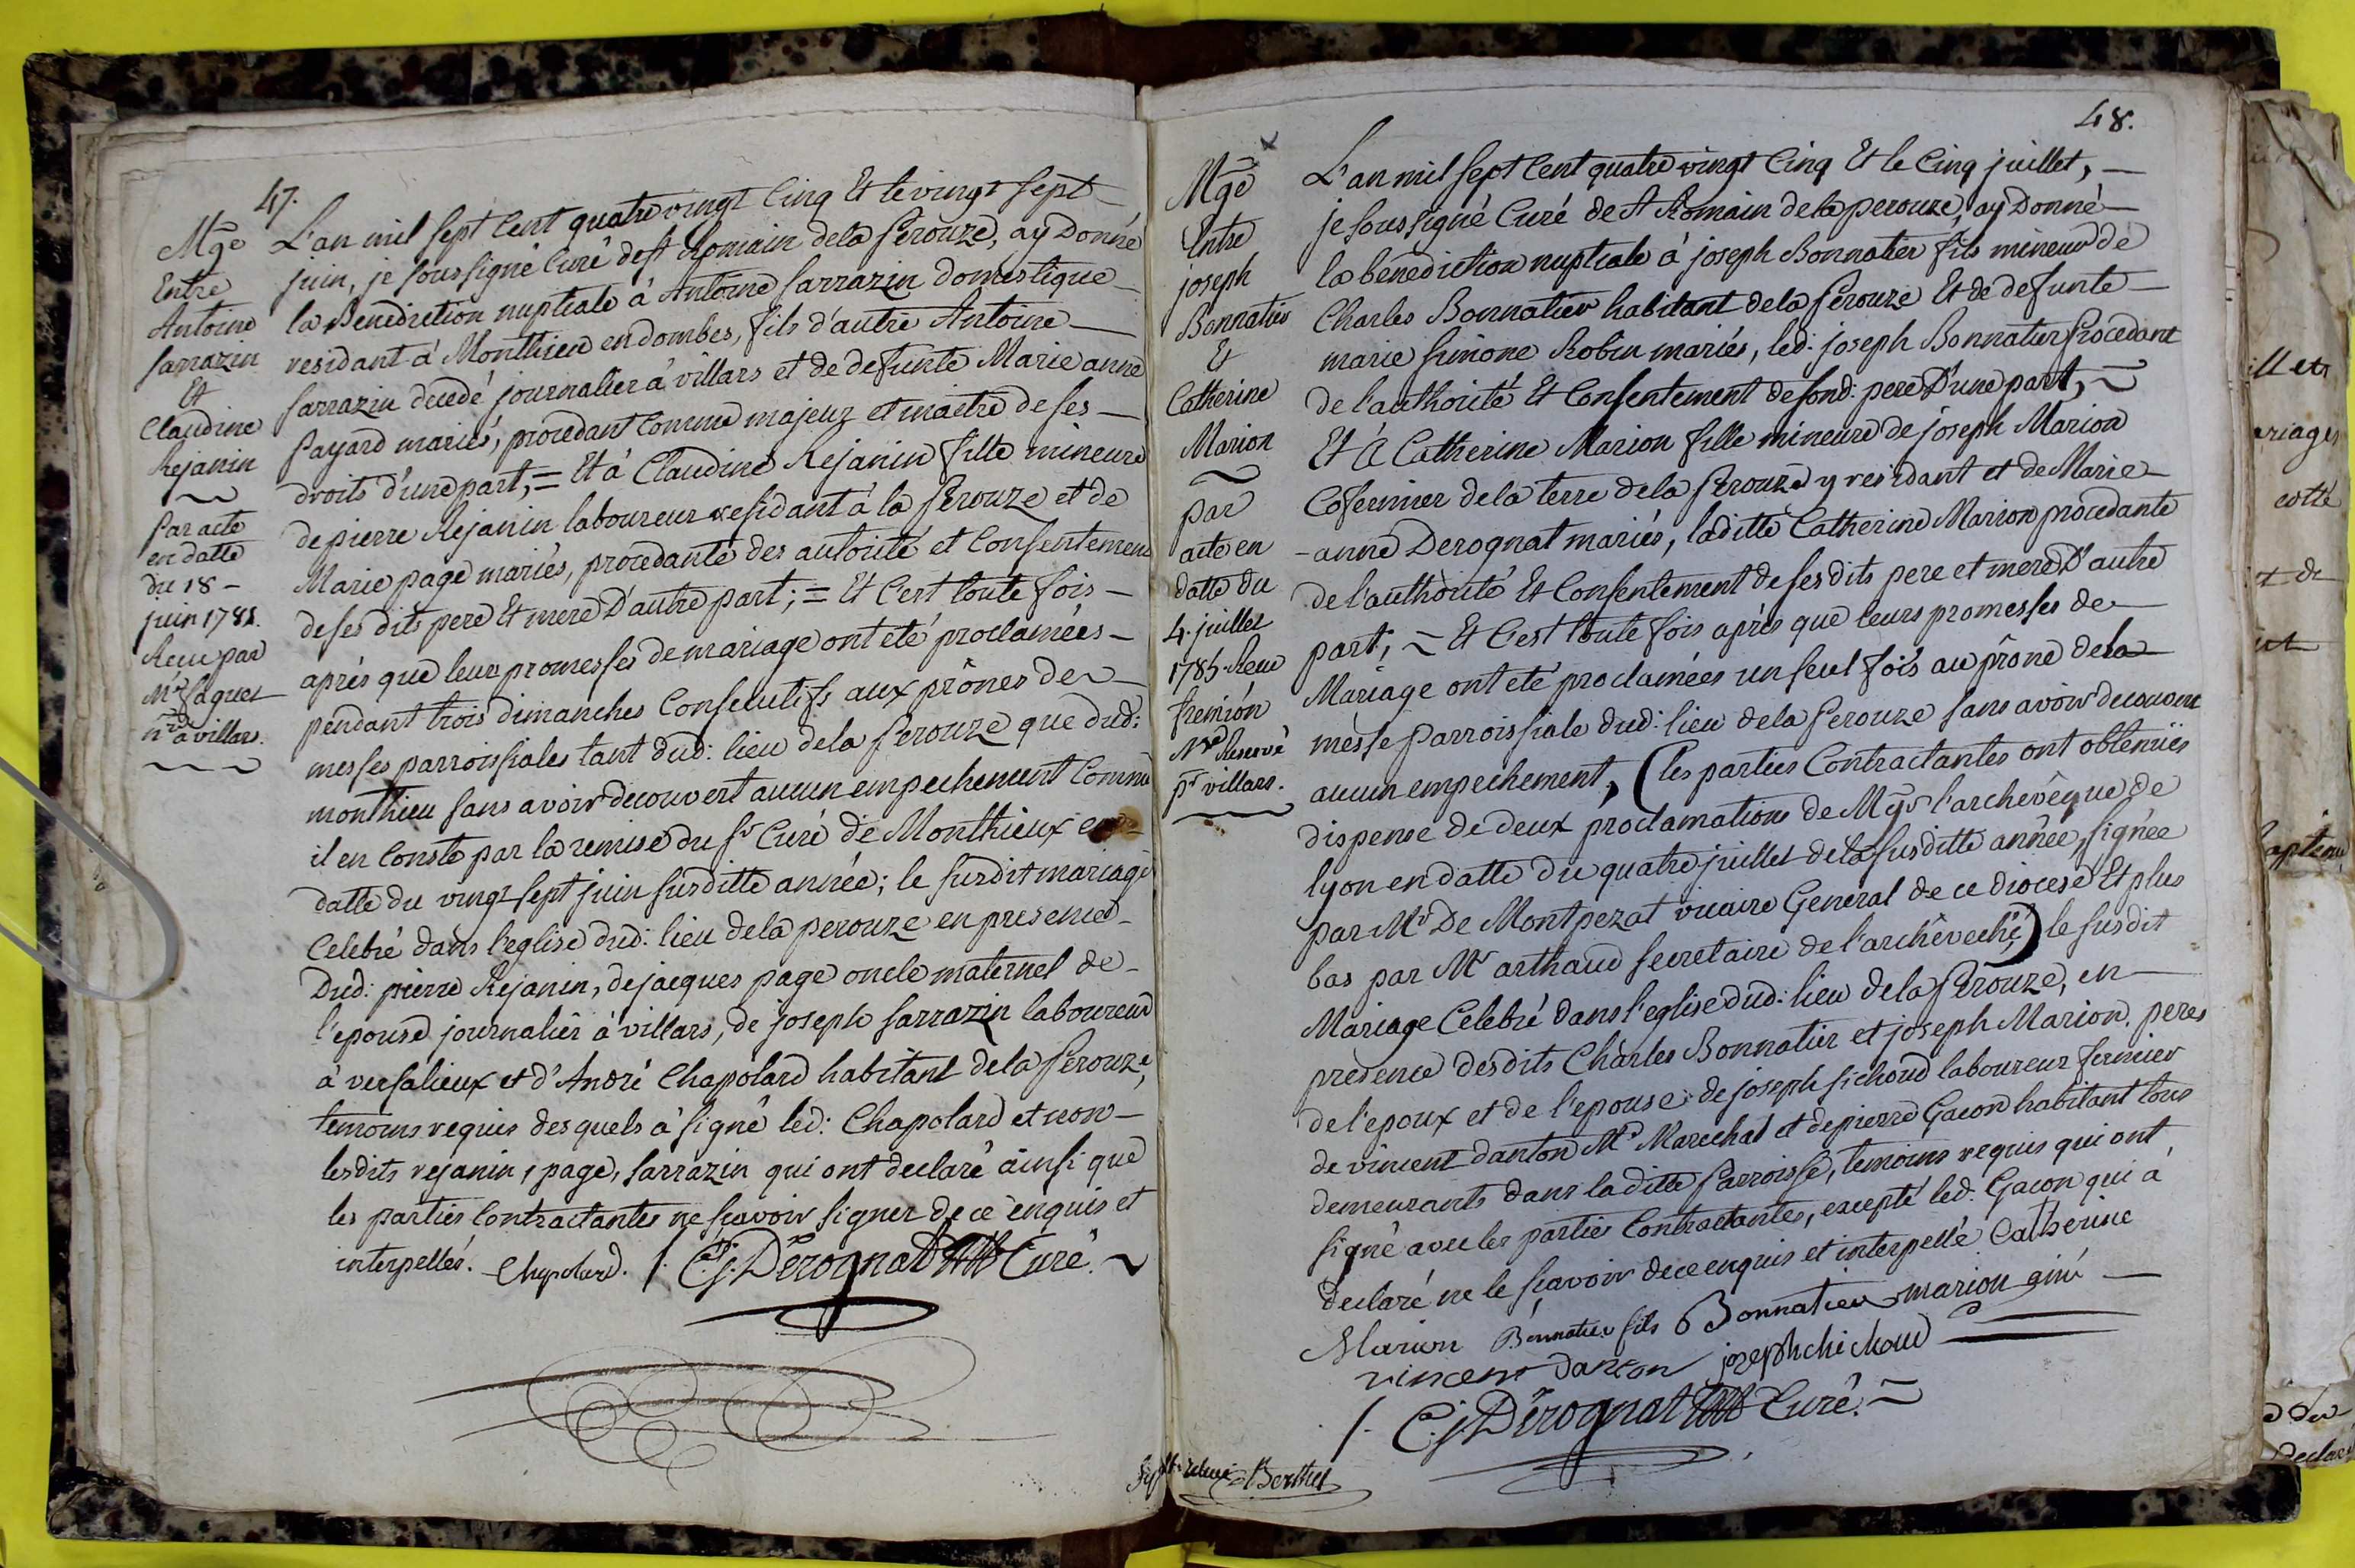 47.
Mge
Entre
Antoine
Sarrazin
Et
Claudine
Rejanin
par acte
en datte
du 18 –
juin 1785.
Recu par
Mr faguet
nre a villars.
L'an mil sept Cent quatre vingt Cinq Et le vingt sept
juin, je soussigné Curé de St Romain dela Perouze, ay Donné
la Benediction nuptiale à Antoine Sarrazin domestique –
residant à Monthieu en dombes, fils d'autre Antoine –
Sarrazin decedé journalier à villars et de defunte Marie anne
Payard mariés, procedant Comme majeur et maitre de ses –
droits d'une part, = Et à Claudine Rejanin fille mineure
de pierre Rejanin laboureur residant à la Perouze et de
Marie page mariés, procedante des autorité et Consentement
de ses dits pere Et mere D'autre part; = Et C'est toute fois –
après que leur promesses de mariage ont eté proclamées –
pendant trois dimanches Consecutifs aux prônes de –
messes parroissiales tant dud: lieu dela Perouze que dud:
monthieu sans avoir decouvert aucun empechement Comme
il en Conste par la remise du Sr Curé de Monthieux en
datte du vingt sept juin susditte année; le susdit mariage
Celebré dans l'eglise dud: lieu dela perouze en presence –
Dud: pierre Rejanin, de jacques page oncle maternel de –
l'epouse journalier à villars, de joseph Sarrazin laboureur
à versalieux et d'André Chapolard habitant dela Perouze,
temoins requis desquels à signé led: Chapolard et non –
lesdits rejanin, page, sarrazin qui ont declaré ainsi que
les parties Contractantes ne scavoir signer de ce enquis et
interpellés. Chapolard. /. C. j. Derognat Curé. ~
48.
Mge
Entre
joseph
Bonnatier
Et
Catherine
Marion
par
acte en
datte du
4. juillet
1785. Recu
fremion
Nre Reservé
pr villars.
L'an mil sept Cent quatre vingt Cinq Et le Cinq juillet, –
je soussigné Curé de St Romain dela perouze, ay Donné –
la benediction nuptiale à joseph Bonnatier fils mineur de
Charles Bonnatier habitant dela Perouze Et de defunte –
marie simone Robin mariés, led: joseph Bonnatier procedant
de l'authorité Et Consentement de sond: pere D'une part, ~
Et à Catherine Marion fille mineure de joseph Marion
Cofermier dela terre dela Perouze y residant et de Marie –
– anne Derognat mariés, laditte Catherine Marion procedante
de l'authorité Et Consentement de ses dits pere et mere D'autre
part; ~ Et C'est toute fois après que leurs promesses de –
Mariage ont eté proclamées un seul fois au prône de la
messe Parroissiale dud: lieu dela Perouze sans avoir decouvert
aucun empechement, (les parties Contractantes ont obtenües
dispense de deux proclamations de Mgr l'archevêque de
lyon en datte du quatre juillet dela susditte année, signée
par Mr De Montpezat vicaire General de ce diocese Et plus
bas par Mr arthaud secretaire de l'archêveché) le susdit
Mariage Celebré dans l'eglise dud: lieu dela Perouze, en –
presence desdits Charles Bonnatier et joseph Marion peres
de l'epoux et de l'epouse de joseph sichoud laboureur fermier
de vincent danton Md Marechal et de pierre Gacon habitant tous
demeurants dans laditte Parroisse, temoins requis qui ont
signé avec les parties Contractantes, excepté led: Gacon qui à
declaré ne le scavoir de ce enquis et interpellé Catherine
Marion Bonnatier fils Bonnatier marion ainé –
vincent danton joseph chichoud
/. C. j. Derognat Curé. ~
Berthet